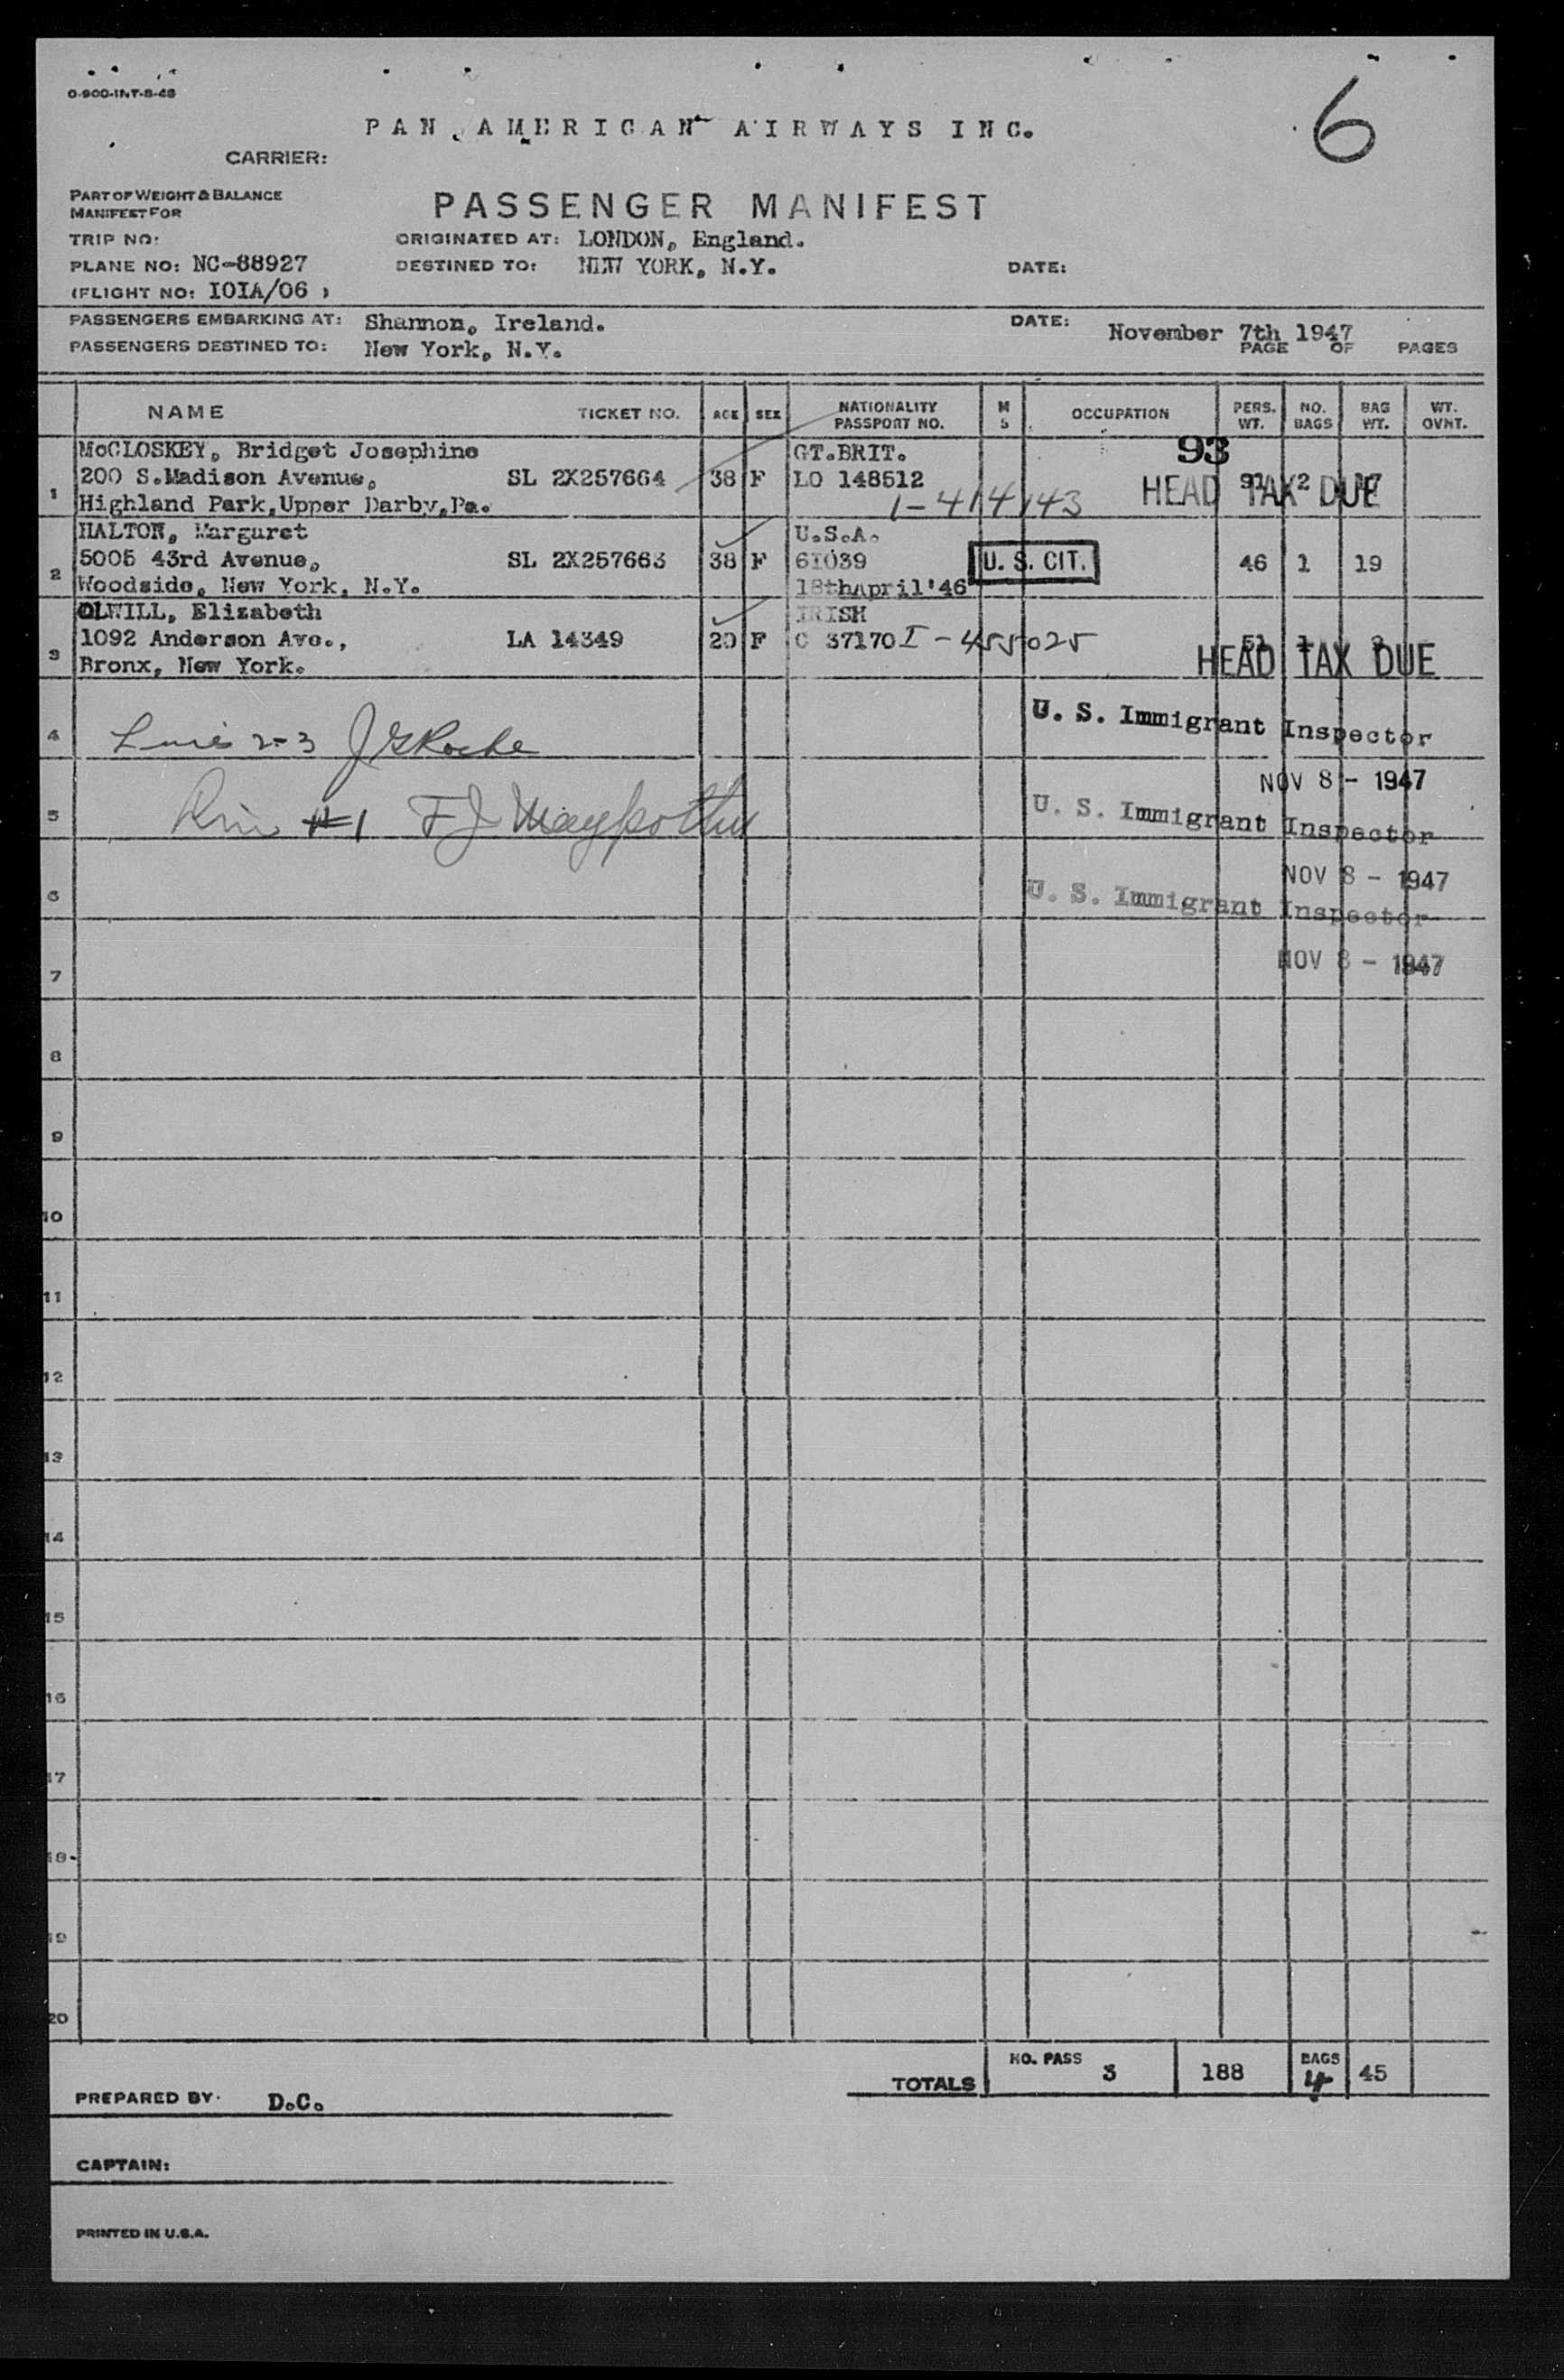 0-900-INT-8-46
6
PAN AMERICAN AIRWAYS INC.
CARRIER:
PART OF WEIGHT & BALANCE
MANIFEST FOR
PASSENGER MANIFEST
TRIP NO:
ORIGINATED AT: LONDON, England.
PLANE NO: NC-88927
DESTINED TO: NEW YORK, N.Y.
DATE:
(FLIGHT NO: IOIA/06 )
PASSENGERS EMBARKING AT: Shannon, Ireland.
DATE: November 7th 1947
PASSENGERS DESTINED TO: New York, N.Y.
PAGE OF PAGES
NAME TICKET NO. AGE SEX NATIONALITY PASSPORT NO. M S OCCUPATION PERS. WT. NO. BAGS BAG WT. WT. OVNT.
McCLOSKEY, Bridget Josephine GT.BRIT. 93
1 200 S.Madison Avenue, SL 2X257664 38 F LO 148512 91 2
HEAD TAX DUE
Highland Park,Upper Darby,Pa. 1-414143
HALTON, Margaret U.S.A.
2 5005 43rd Avenue, SL 2X257663 38 F 61039 U. S. CIT. 46 1 19
Woodside, New York, N.Y. 18thApril'46
OLWILL, Elizabeth IRISH
3 1092 Anderson Ave., LA 14349 20 F C 37170 I-455025 51 1
HEAD TAX DUE
Bronx, New York.
4 2-3 J G Roche
U. S. Immigrant Inspector
NOV 8 - 1947
5 #1 F J
U. S. Immigrant Inspector
NOV 8 - 1947
6
U. S. Immigrant Inspector
NOV 8 - 1947
7
8
9
10
11
12
13
14
15
16
17
18
19
20
TOTALS NO. PASS 3 188 BAGS 4 45
PREPARED BY. D.C.
CAPTAIN:
PRINTED IN U.S.A.